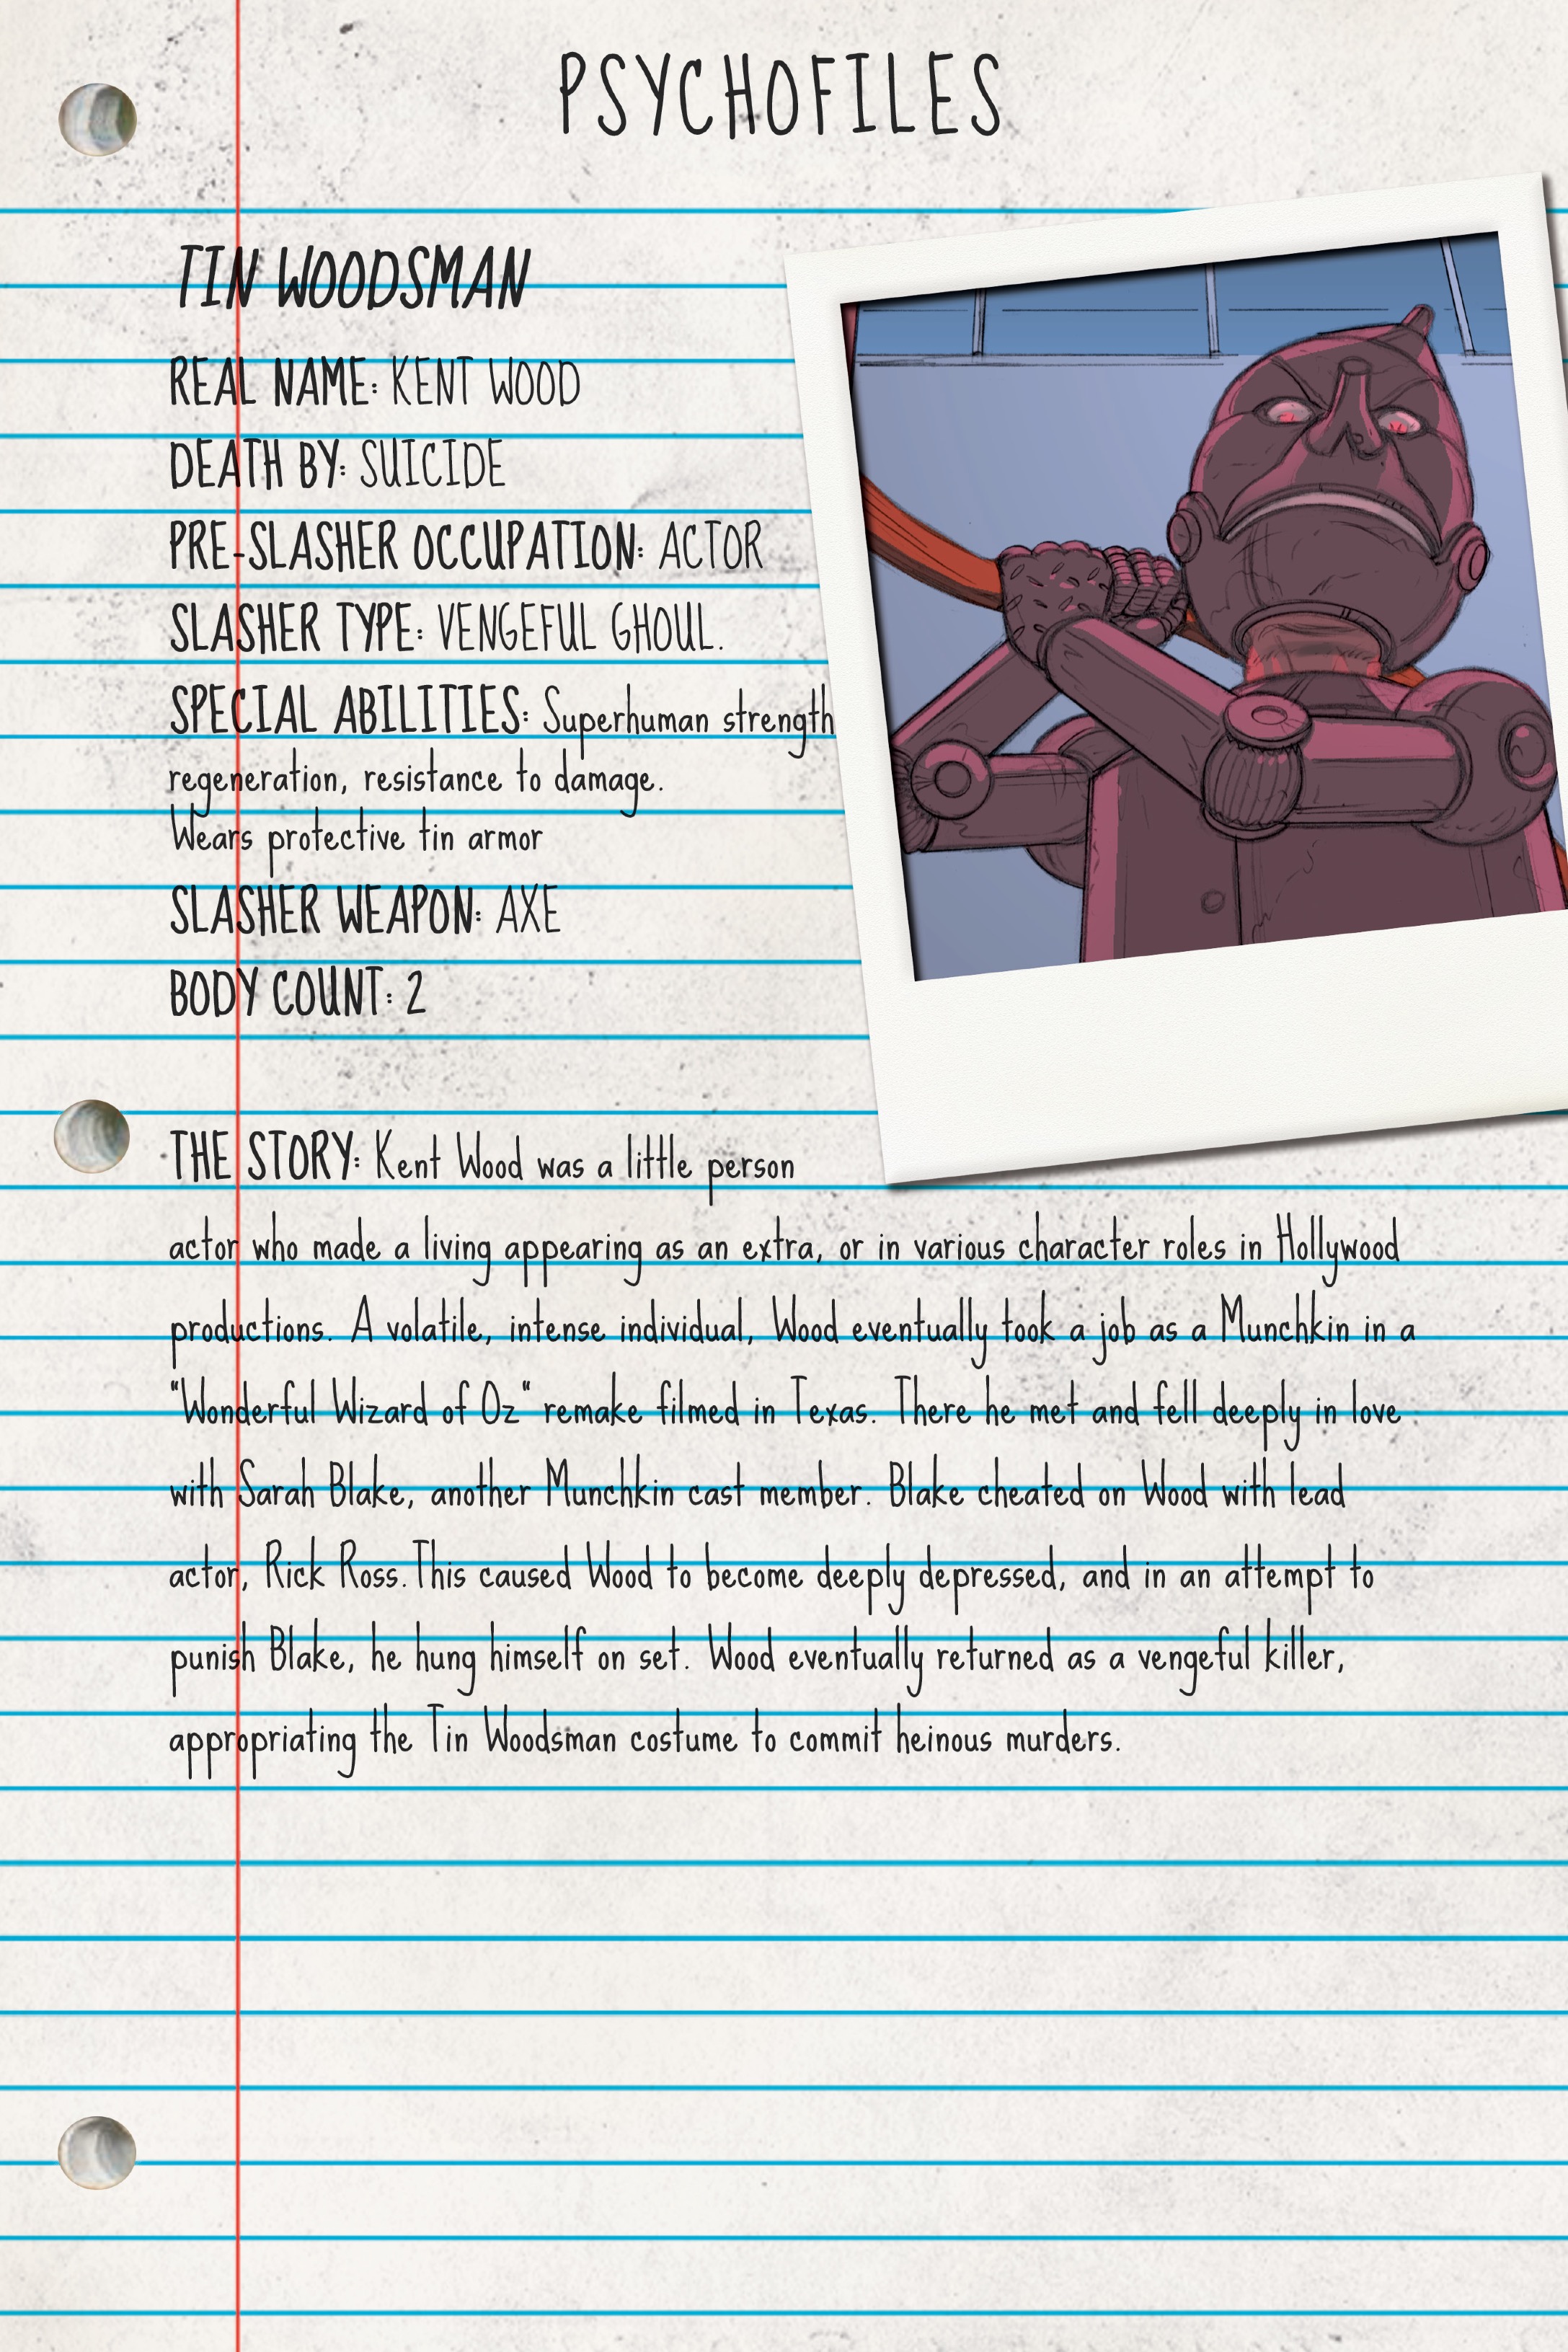 PSYCHOFILES
TIN WOODSMAN
REAL NAME: KENT WOOD
DEATH BY: SUICIDE
PRE-SLASHER OCCUPATION: ACTOR
SLASHER TYPE: VENGEFUL GHOUL.
SPECIAL ABILITIES: Superhuman strength
regeneration, resistance to damage.
Wears protective tin armor
SLASHER WEAPON: AXE
BODY COUNT: 2
THE STORY: Kent Wood was a little person
actor who made a living appearing as an extra, or in various character roles in Hollywood
productions. A volatile, intense individual, Wood eventually took a job as a Munchkin in a
"Wonderful Wizard of Oz" remake filmed in Texas. There he met and fell deeply in love
with Sarah Blake, another Munchkin cast member. Blake cheated on Wood with lead
actor, Rick Ross. This caused Wood to become deeply depressed, and in an attempt to
punish Blake, he hung himself on set. Wood eventually returned as a vengeful killer,
appropriating the Tin Woodsman costume to commit heinous murders.